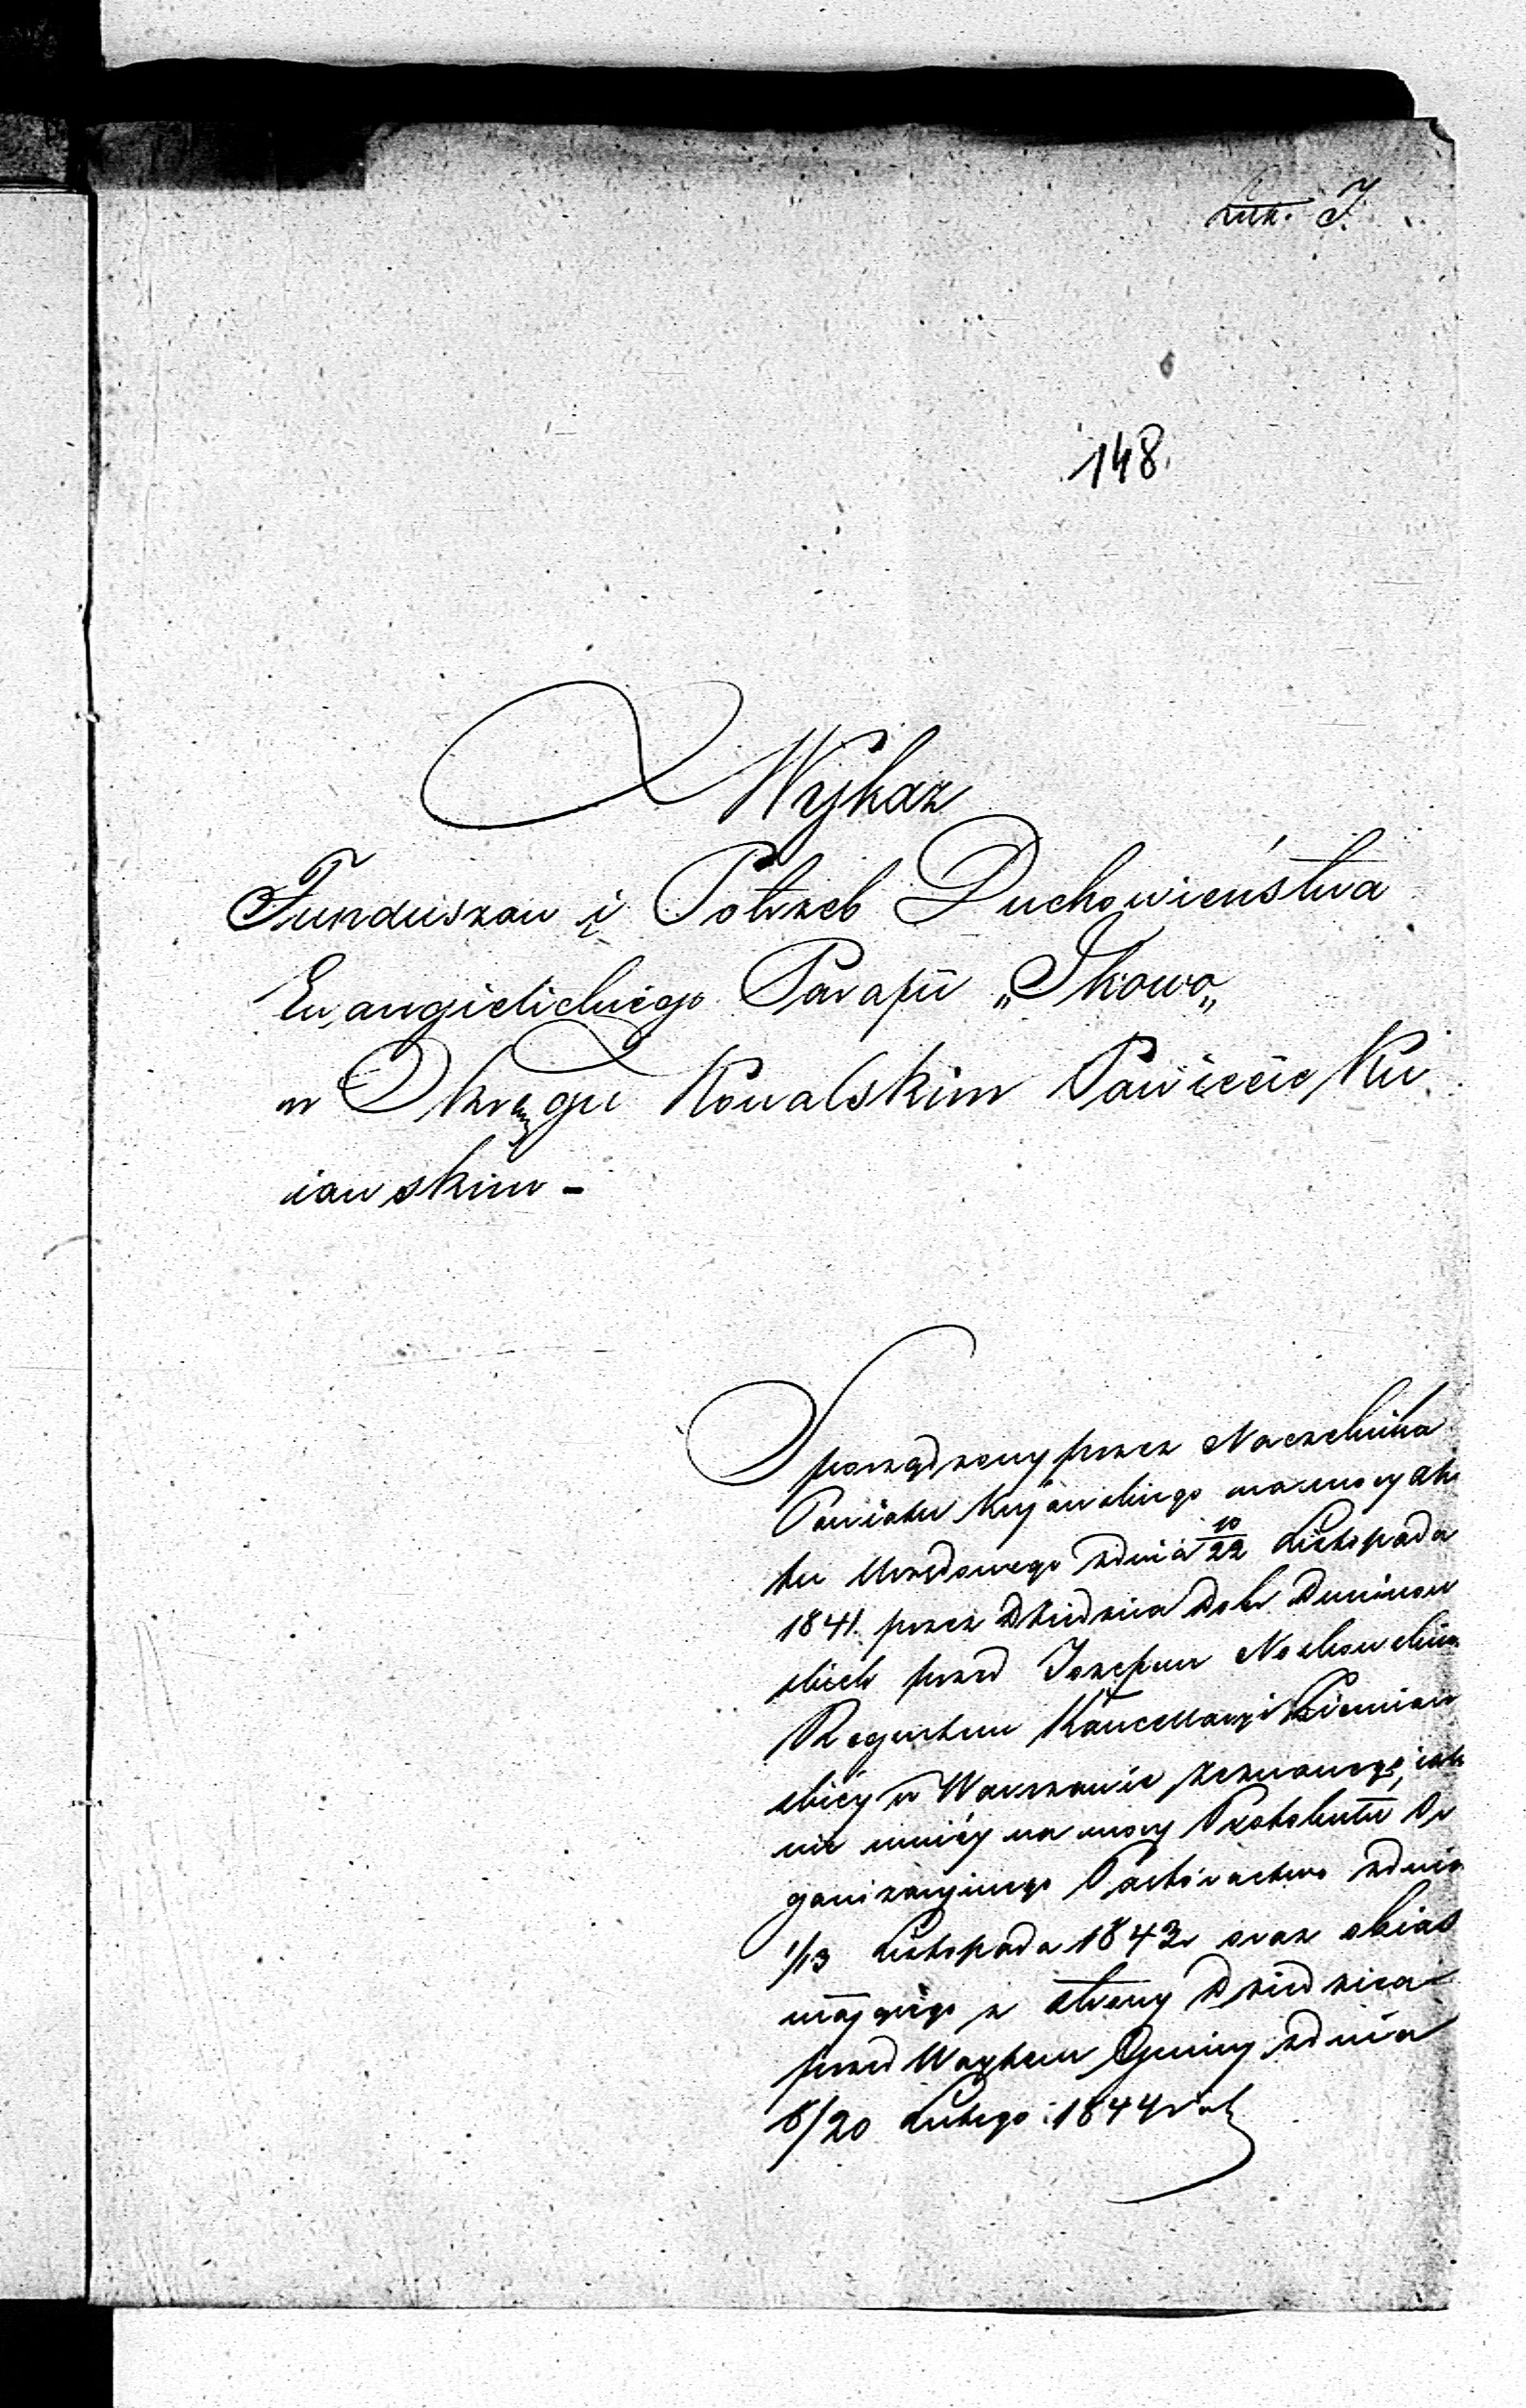 Litt. J.
148.
Wykaz
Funduszow i Potrzeb Duchowieństwa
Ewangielickiego Parafii „Ikowo„
w Okręgu Kowalskim Powiecie Ku
iawskim -
Sporządzony przez Naczelnika
Powiatu Kujawskiego na mocy Ak
tu Urzędowego z dnia 10/22 Listopada
1841. przez Dziedzica Dobr Duninow
skich przed Jozefem Noskowskim
Regentem Kancellaryi Ziemiań
skiéy w Warszawie zeznanego, iak
nie mniéy na mocy Protokułu Or
ganizacyjnego Pastoractwa z dnia
1/13 Listopada 1842r oraz obias
niającego z strony Dziedzica
przed Woytem Gminy z dnia
8/20 Lutego 1844 rok